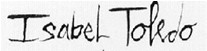 Isabel Toledo